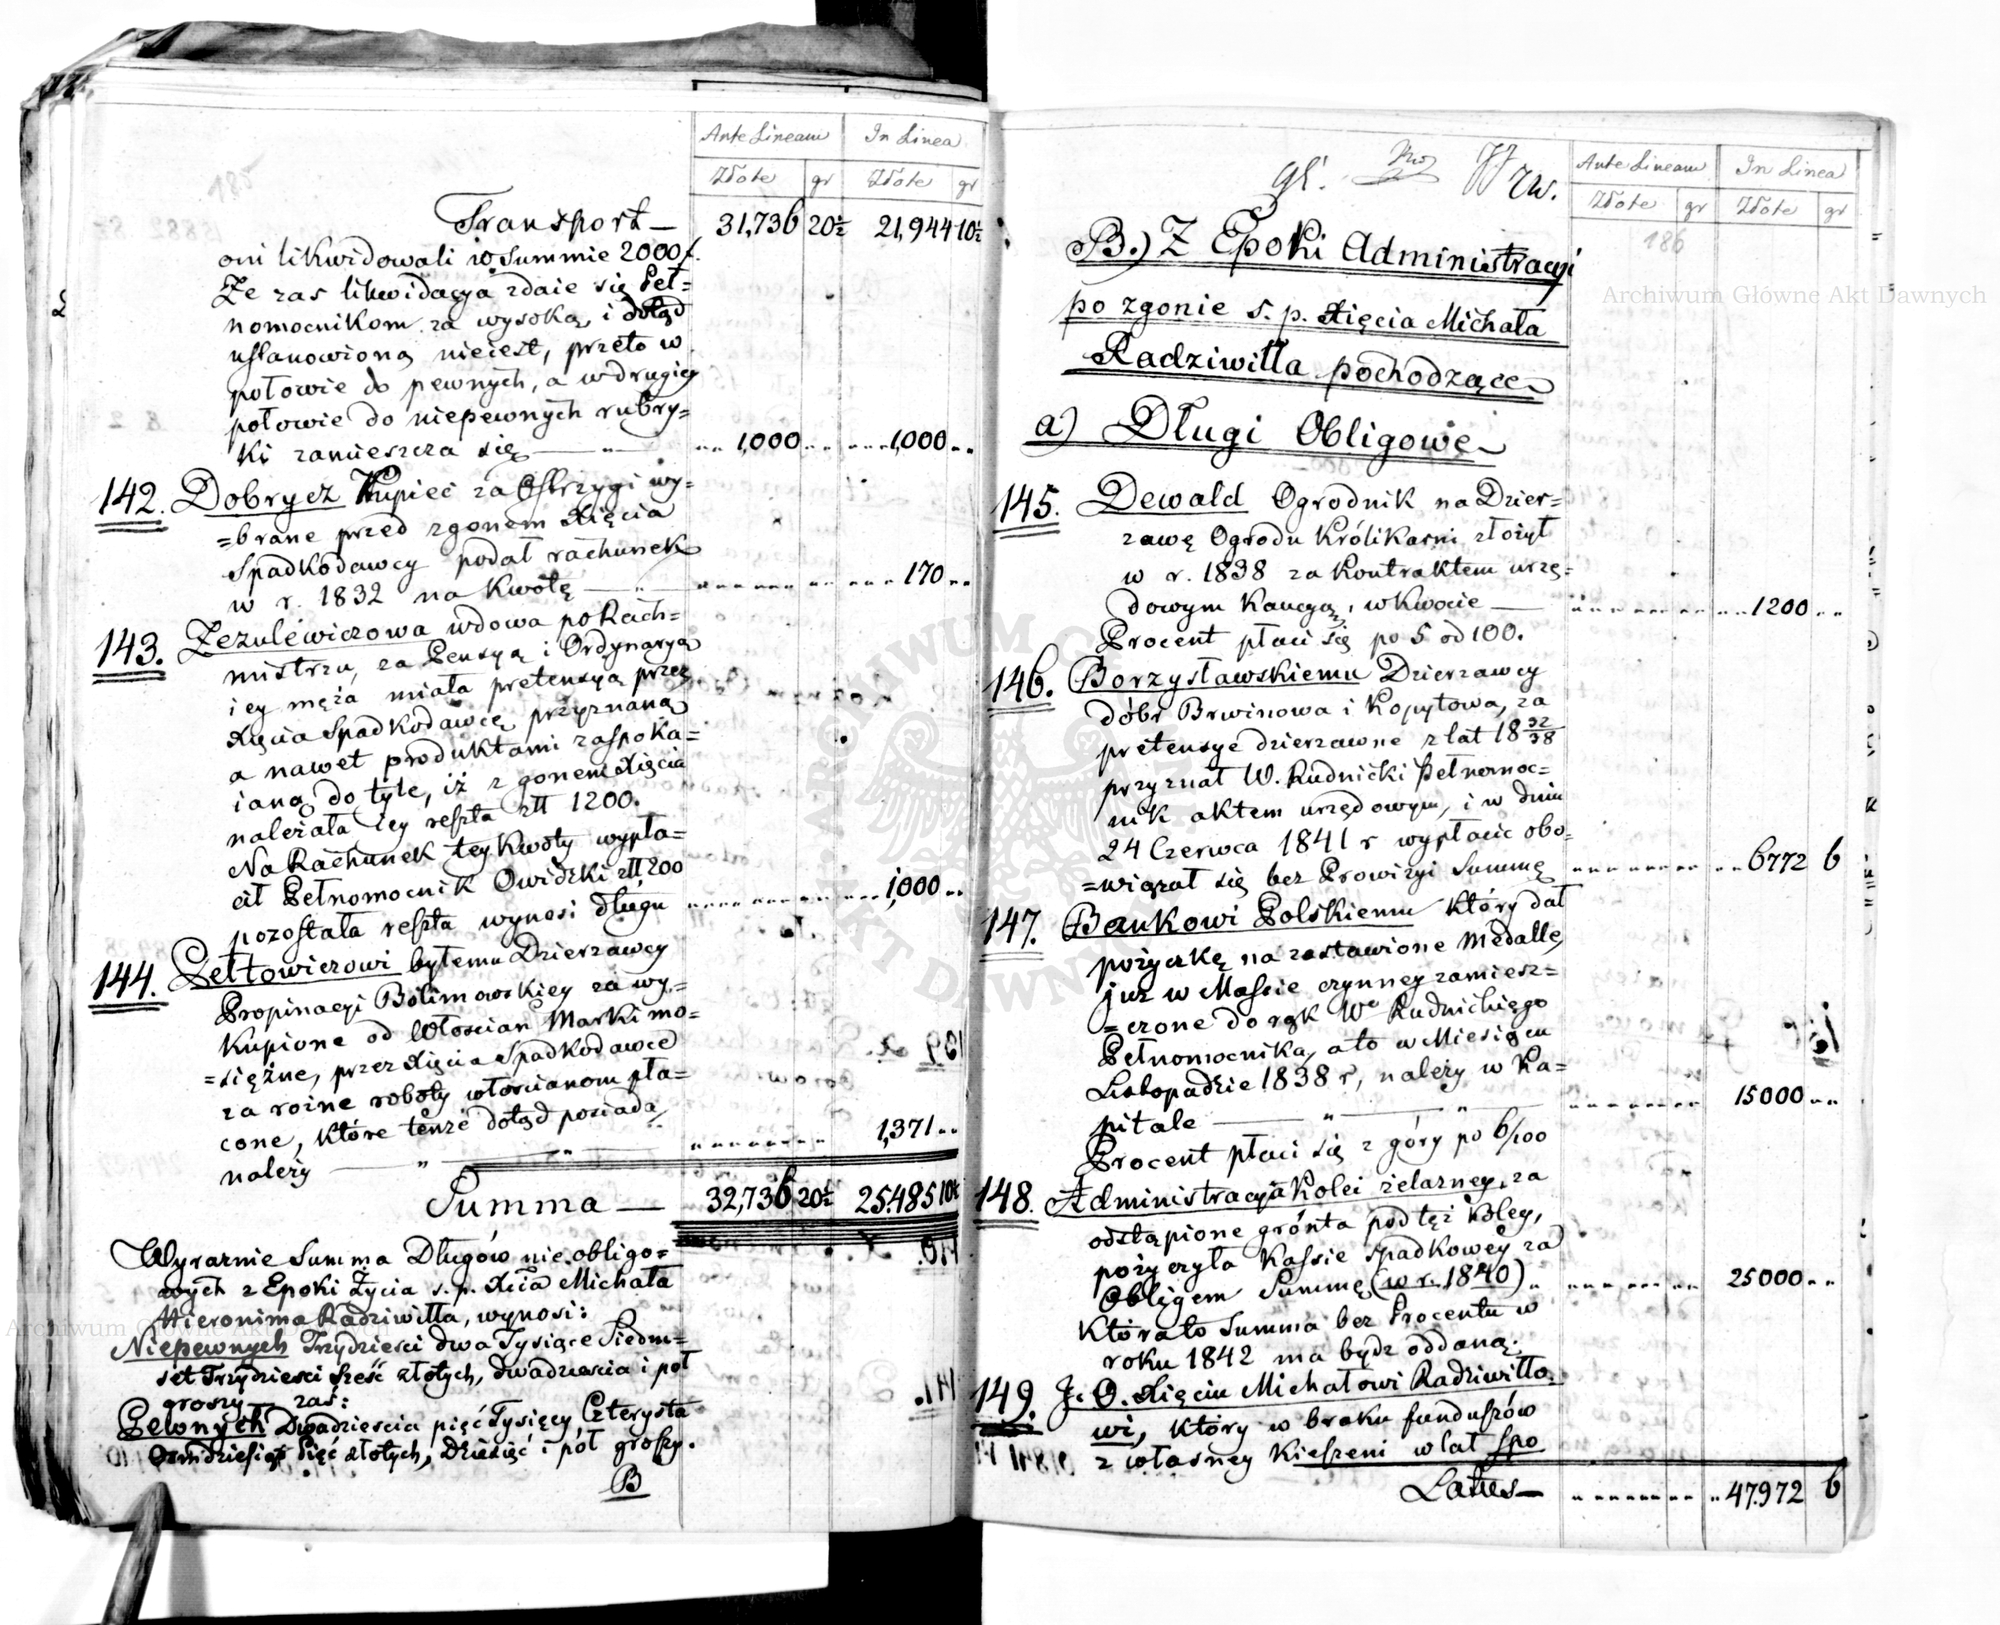 185
Ante Lineam In Linea
Złote gr Złote gr
Transport — 31,736 20½ 21,944 10½
oni likwidowali w Summie 2000 f.
Że zas likwidacya zdaie się Peł=
nomocnikom za wysoką, i dotąd
ustanowioną nieiest, przeto w
połowie do pewnych, a w drugiey
połowie do niepewnych rubry=
ki zamieszcza się — " 1,000 1,000
142. Dobrycz Kupiec za Ostrzygi wy=
=brane przed zgonem Xięcia
Spadkodawcy podał rachunek
w r. 1832 na kwotę — " 170
143. Zezulewiczowa wdowa po Rach=
mistrzu, za Pensyą i Ordynaryą
iey męża miała pretensyą przez
Xięcia Spadkodawcę przyznaną
a nawet produktami zaspoka=
ianą do tyle, iż z gonem Xięcia
należała iey reszta złł 1200.
Na Rachunek tey kwoty wypła=
cił Pełnomocnik Owidzki złł 200
pozostała reszta wynosi długu 1,000
144. Pełtowiczowi byłemu Dzierzawcy
Propinacyi Bolimowskiey za wy=
kupione od Włoscian Marki mo=
=siężne, przez Xięcia Spadkodawce
za rożne roboty włoscianom pła=
cone, które tenże dotąd posiada,
należy — " — " 1,371
Summa — 32,736 20½ 25485 10½
Wyraznie Summa Długów nie obligo=
wych z Epoki Życia s. p. Xcia Michała
Hieronima Radziwiłła, wynosi:
Niepewnych Trzydziesci dwa Tysiące Siedm=
set Trzydziesci Sześć złotych, dwadziescia i pół
groszy — zaś:
Pewnych Dwadziescia pięć Tysięcy Czterysta
Osmdziesiąt Pięć złotych, Dziesięć i pół groszy.
B
Ante Lineam In Linea
Złote gr Złote gr
186
B.) Z Epoki Administracyi
po zgonie s. p. Xięcia Michała
Radziwiłła pochodzące
a) Długi Obligowe
145. Dewald Ogrodnik na Dzier=
zawę Ogrodu Królikarni złożył
w r. 1838 za kontraktem urzę=
dowym kaucyą, w kwocie — 1200
Procent płaci się po 5 od 100.
146. Borzysławskiemu Dzierzawcy
dóbr Brwinowa i Kopytowa, za
pretensye dzierzawne z lat 18 32/38
przyznał W. Rudnicki Pełnomoc=
nik aktem urzędowym, i w dniu
24 Czerwca 1841 r wypłacic obo=
=wiązał się bez Prowizyi Summę 6772 6
147. Bankowi Polskiemu który dał
pożyczkę na zastawione Medalle,
już w Massie czynney zamiesz=
=czone do rąk We Rudnickiego
Pełnomocnika, a to w Miesiącu
Listopadzie 1838 r, należy w Ka=
pitale — " — " 15000
Procent płaci się z góry po 6/100
148. Administracyia Kolei żelazney, za
odstąpione grónta pod też koley,
pożyczyła Kassie Spadkowey za
Obligem Summę (w r. 1840) 25000
Która to Summa bez Procentu w
roku 1842 ma bydz oddaną.
149. J. O. Xięciu Michałowi Radziwiłło=
wi, który w braku funduszów
z własney kieszeni w lat spo
Latus — 47.972 6
Archiwum Główne Akt Dawnych
Archiwum Główne Akt Dawnych
ARCHIWUM GŁÓWNE AKT DAWNYCH